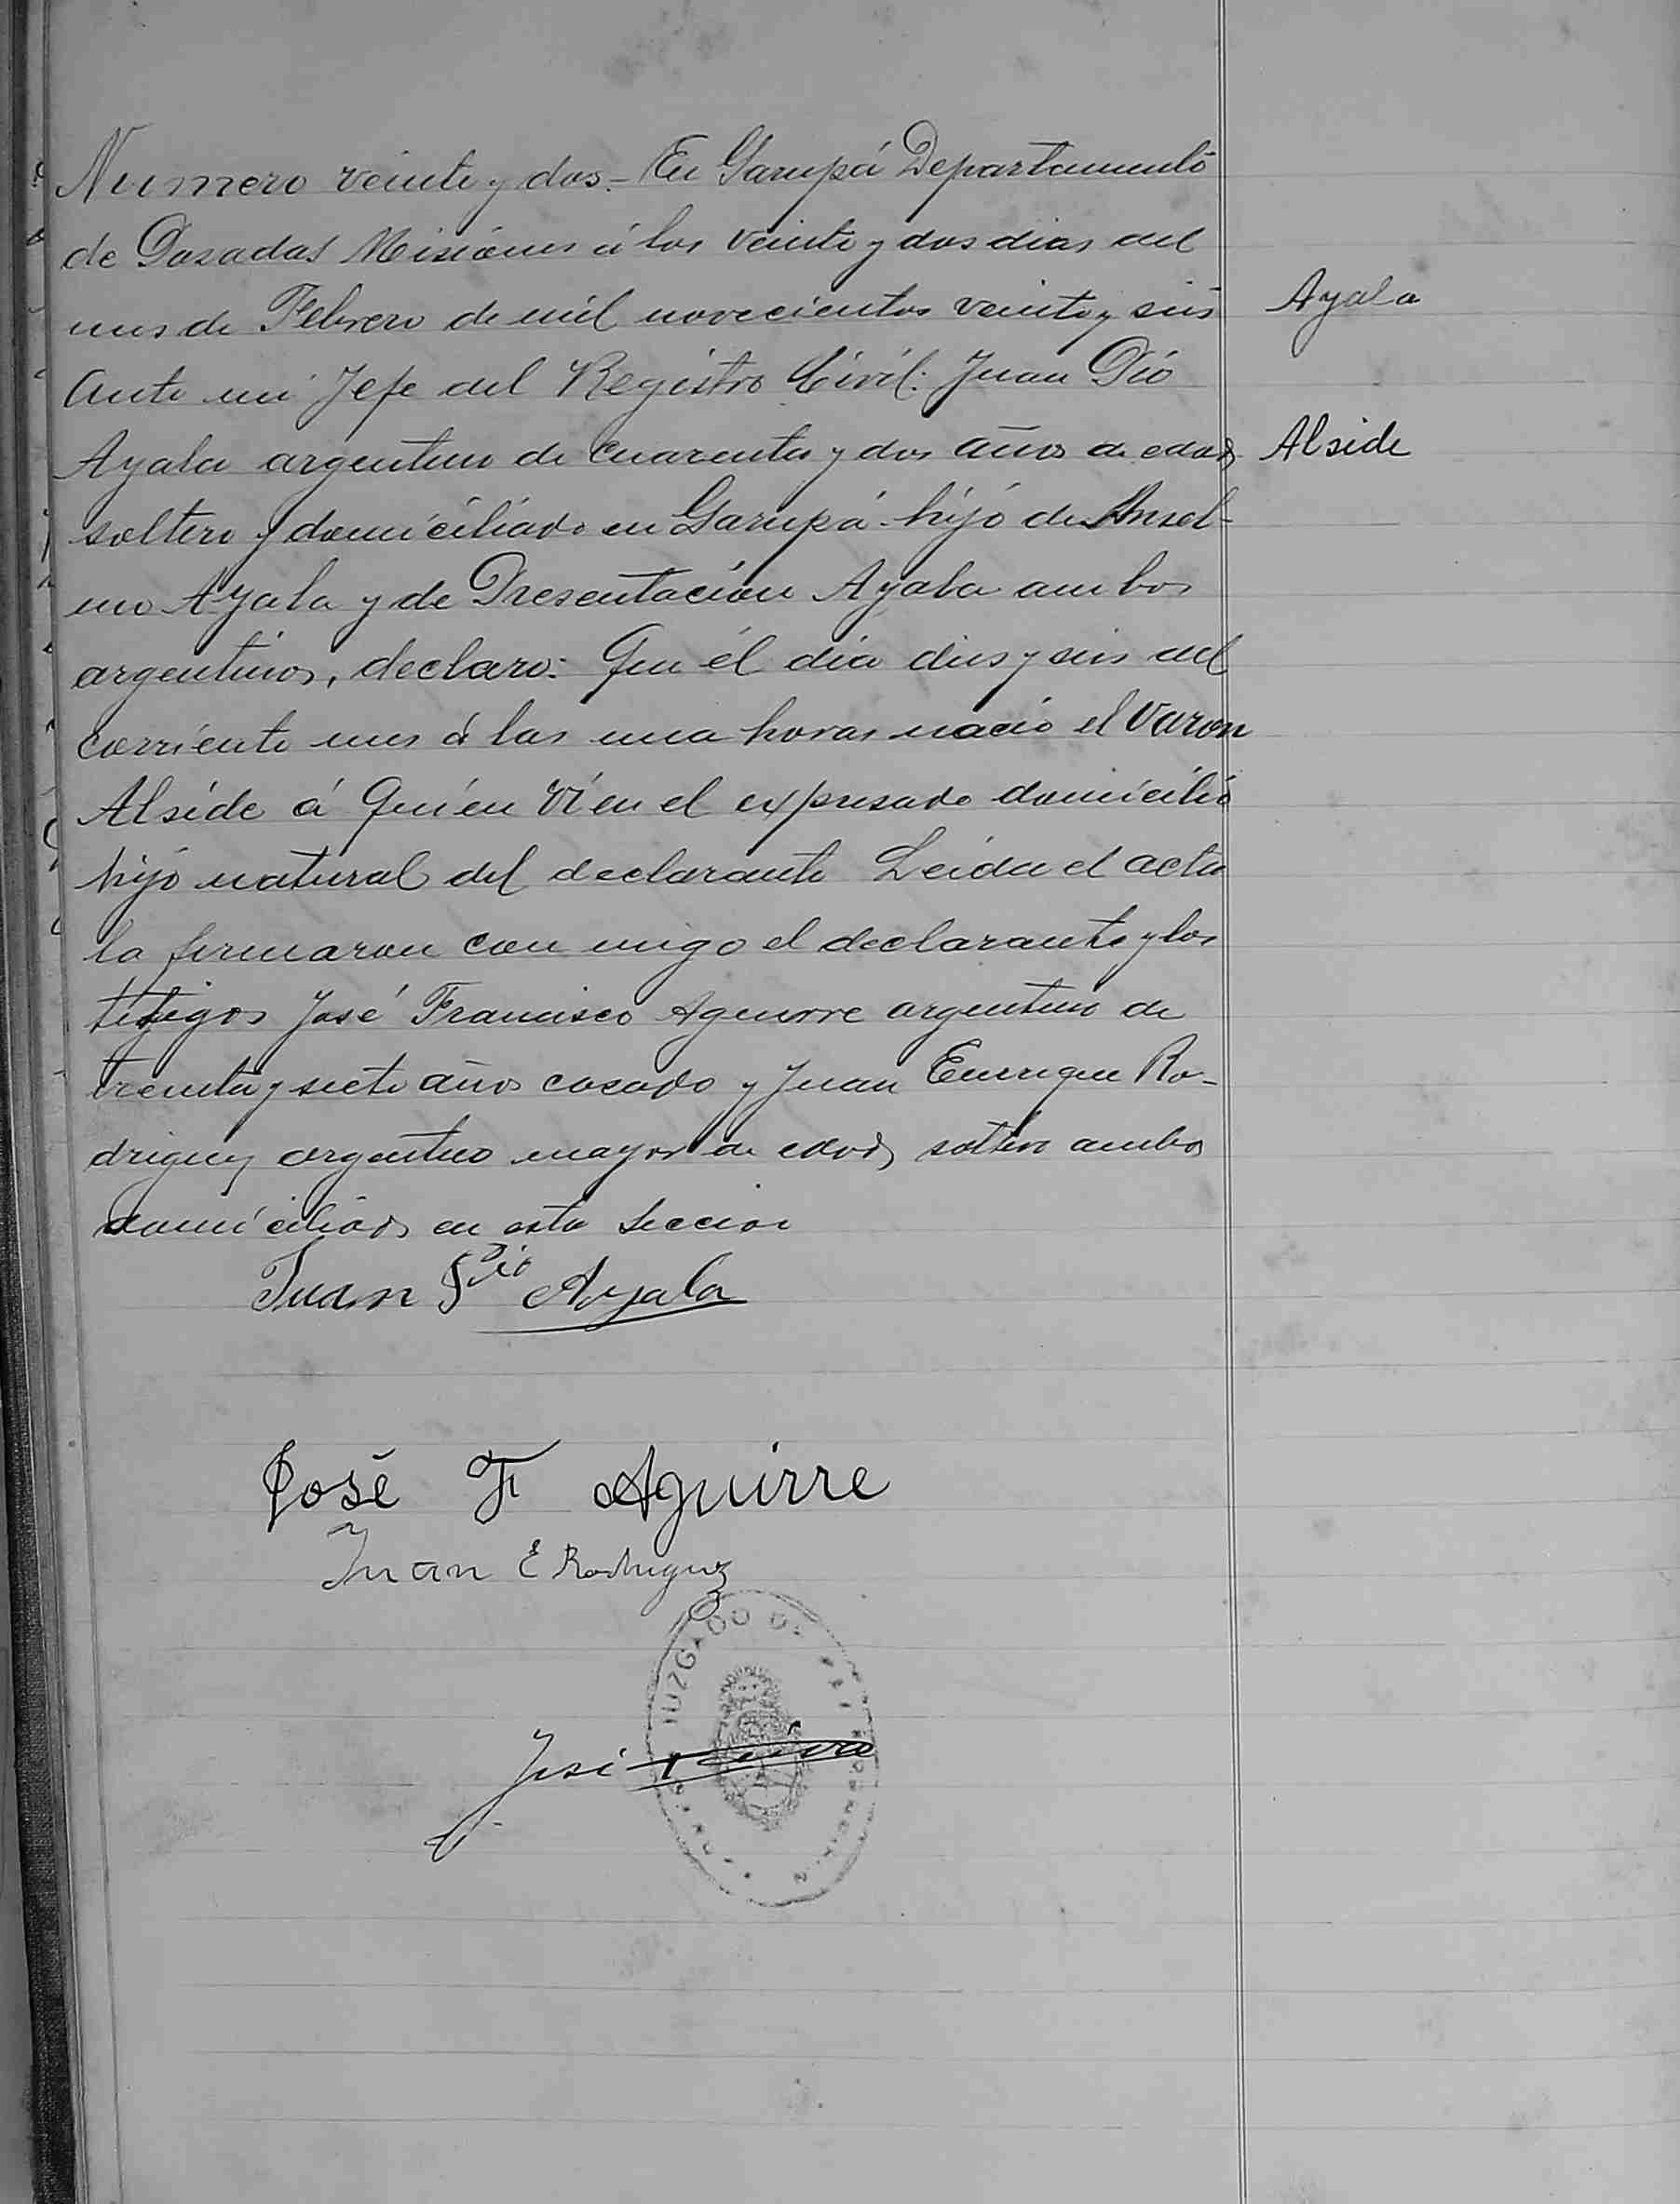 Numero veinte y dos.- En Garupá Departamento
de Posadas Misiones á los veinte y dos dias del
mes de Febrero de mil novecientos veinte y seis
Ayala
Ante mi Jefe del Registro Civil: Juan Pío
Ayala argentino de cuarenta y dos años de edad
Alside
soltero y domiciliado en Garupá hijo de Ansel-
mo Ayala y de Presentacion Ayala ambos
argentinos, declaro: Que él día dies y seis del
corriente mes á las una horas nació el varon
Alside á quién ví en el expresado domicilio
hijo natural del declarante Leida el acta
la firmaron con migo el declarante y los
testigos José Francisco Aguirre argentino de
treinta y siete años casado y Juan Enrique Ro-
driguez argentino mayor de edad soltero ambos
domiciliados en esta seccion
Juan Pío Ayala
José F Aguirre
Juan E Rodriguez
JUZGADO DE
José